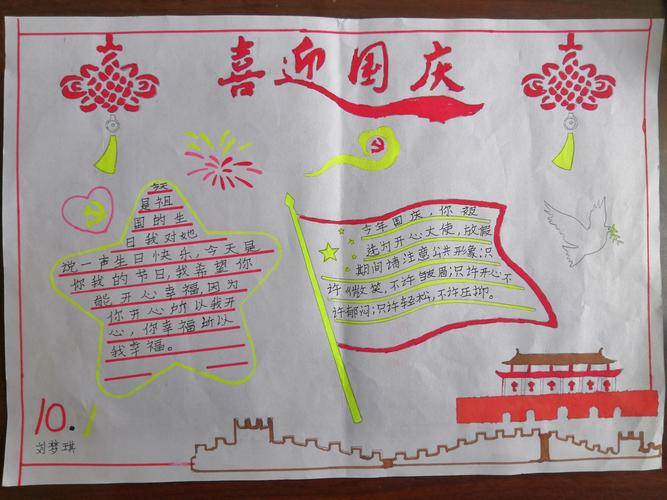 喜迎国庆
今天
是祖
国的生
日我对她
说一声生日快乐,今天是
你我的节日,我希望你
能开心幸福,因为
你开心所以我开
心,你幸福所以
我幸福。
今年国庆,你被
选为开心大使,放假
期间请注意公共形象:只
许微笑,不许皱眉;只许开心不
许郁闷;只许轻松,不许压抑。
10.1
刘梦琪